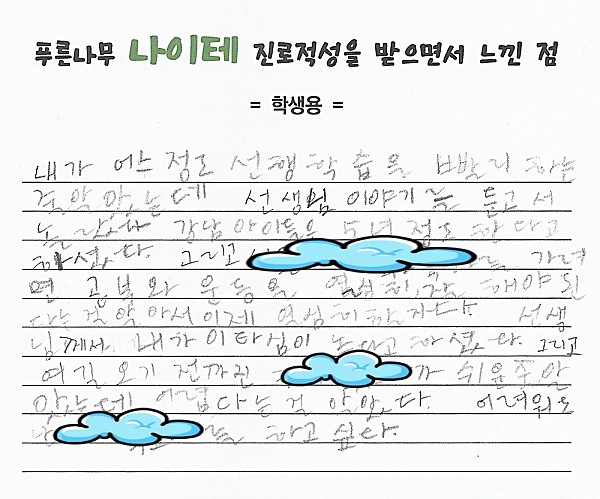 푸른나무 나이테 진로적성을 받으면서 느낀 점
= 학생용 =
내가 어느 정도 선행학습을 빠빨리 하는
걸 알았는데 선생님 이야기를 듣고서
놀랐다 강남아이들은 5년 정도 한다고
하셨다. 그리고 가려
면 공부와 운동을 열심히, 잘 해야 된
다는 걸 알아서 이제 열심히 하자다. 선생
님께서 내가 이타심이 높다고 하셨다. 그리고
여길 오기 전까진 가 쉬운줄 알
았는데 어렵다는 걸 알았다. 어려워도
를 하고 싶다.